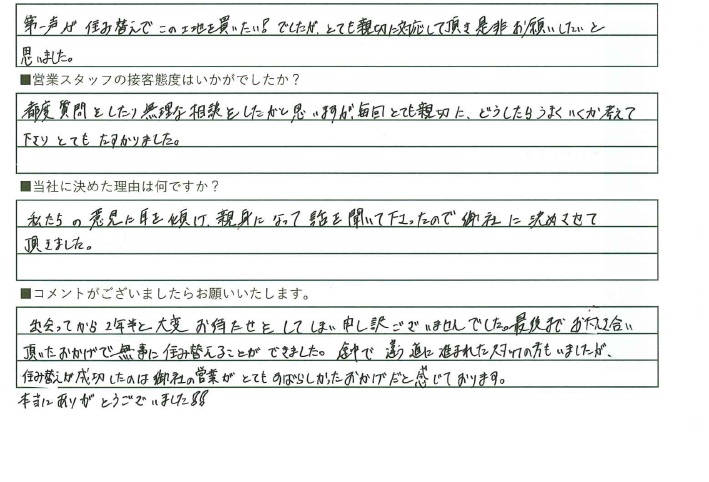 第一声が 住み替えで この土地を買いたい!! でしたが、とても親切に対応して頂き是非お願いしたいと
思いました。
■営業スタッフの接客態度はいかがでしたか?
都度質問をしたり無理な相談をしたかと思いますが、毎回とても親切に、どうしたらうまくいくか考えて
下さり とても たすかりました。
■当社に決めた理由は何ですか?
私たちの意見に耳を傾け、親身になって 話を聞いて下さったので御社に決めさせて
頂きました。
■コメントがございましたらお願いいたします。
出会ってから2年半と大変お待たせをしてしまい申し訳ございませんでした。最後までお付き合い
頂いたおかげで無事に住み替えることができました。途中で違う道に進まれたスタッフの方もいましたが、
住み替えが成功したのは御社の営業がとてもすばらしかったおかげだと感じております。
本当にありがとうございました!!